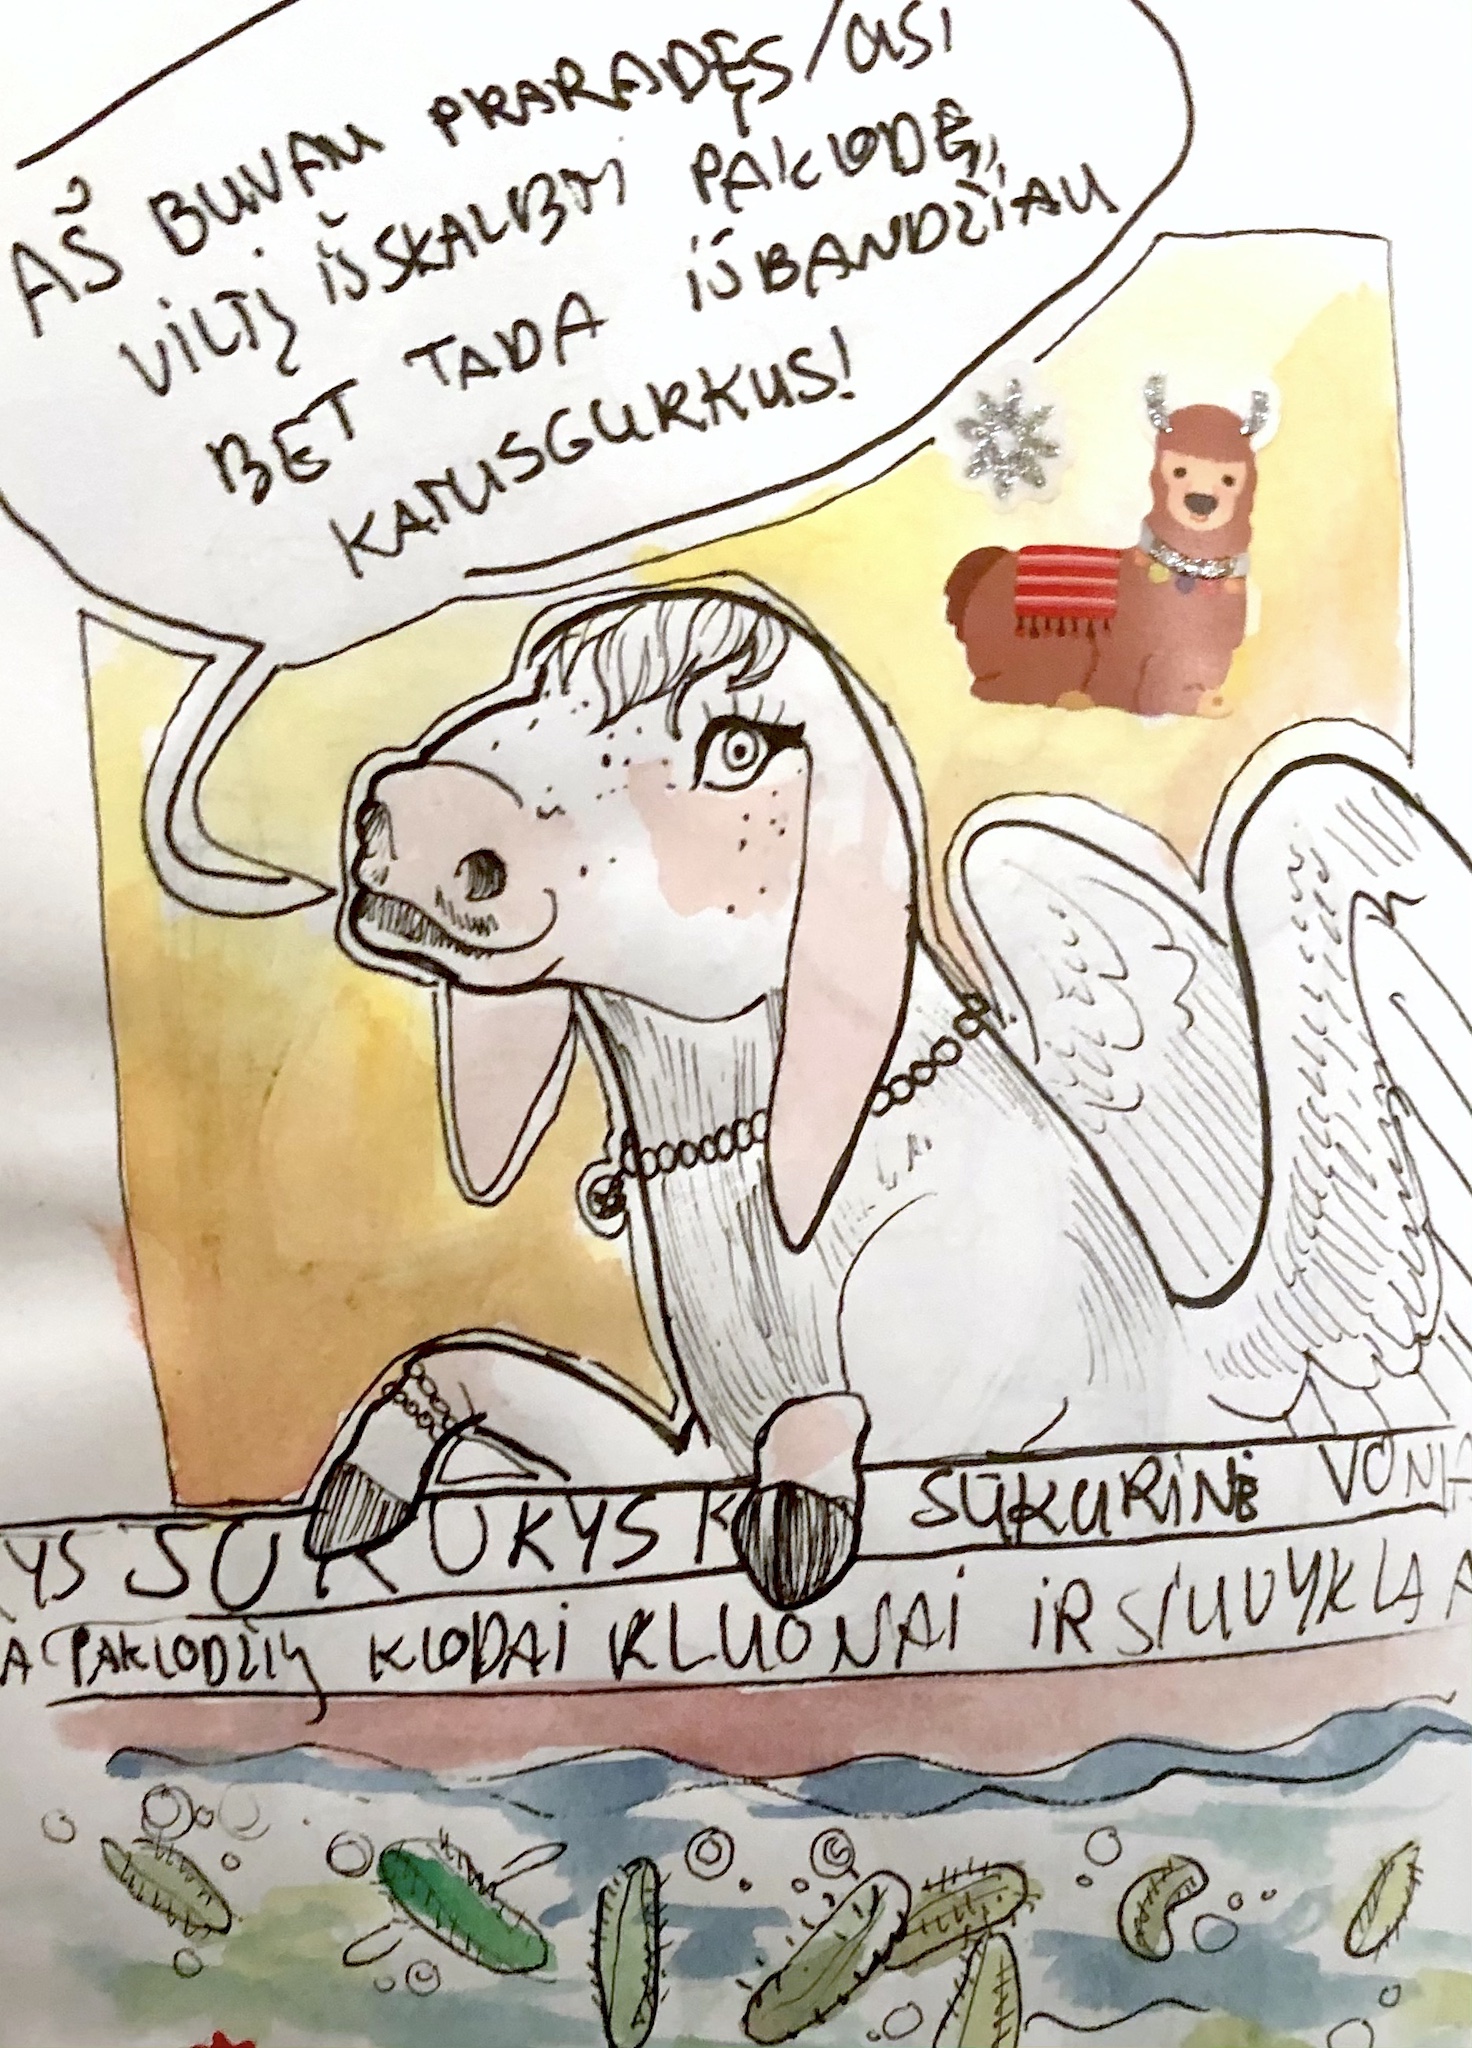 AŠ BUVAU PRARADĘS/USI
VILTĮ IŠSKALBTI PAKLODĘ,
BET TADA IŠBANDŽIAU
KAMUSGURKUS!
SŪKURINĖ VONIA
YS SŪKURYS K
PAKLODŽIŲ KLODAI KLUONAI IR SIUVYKLA A